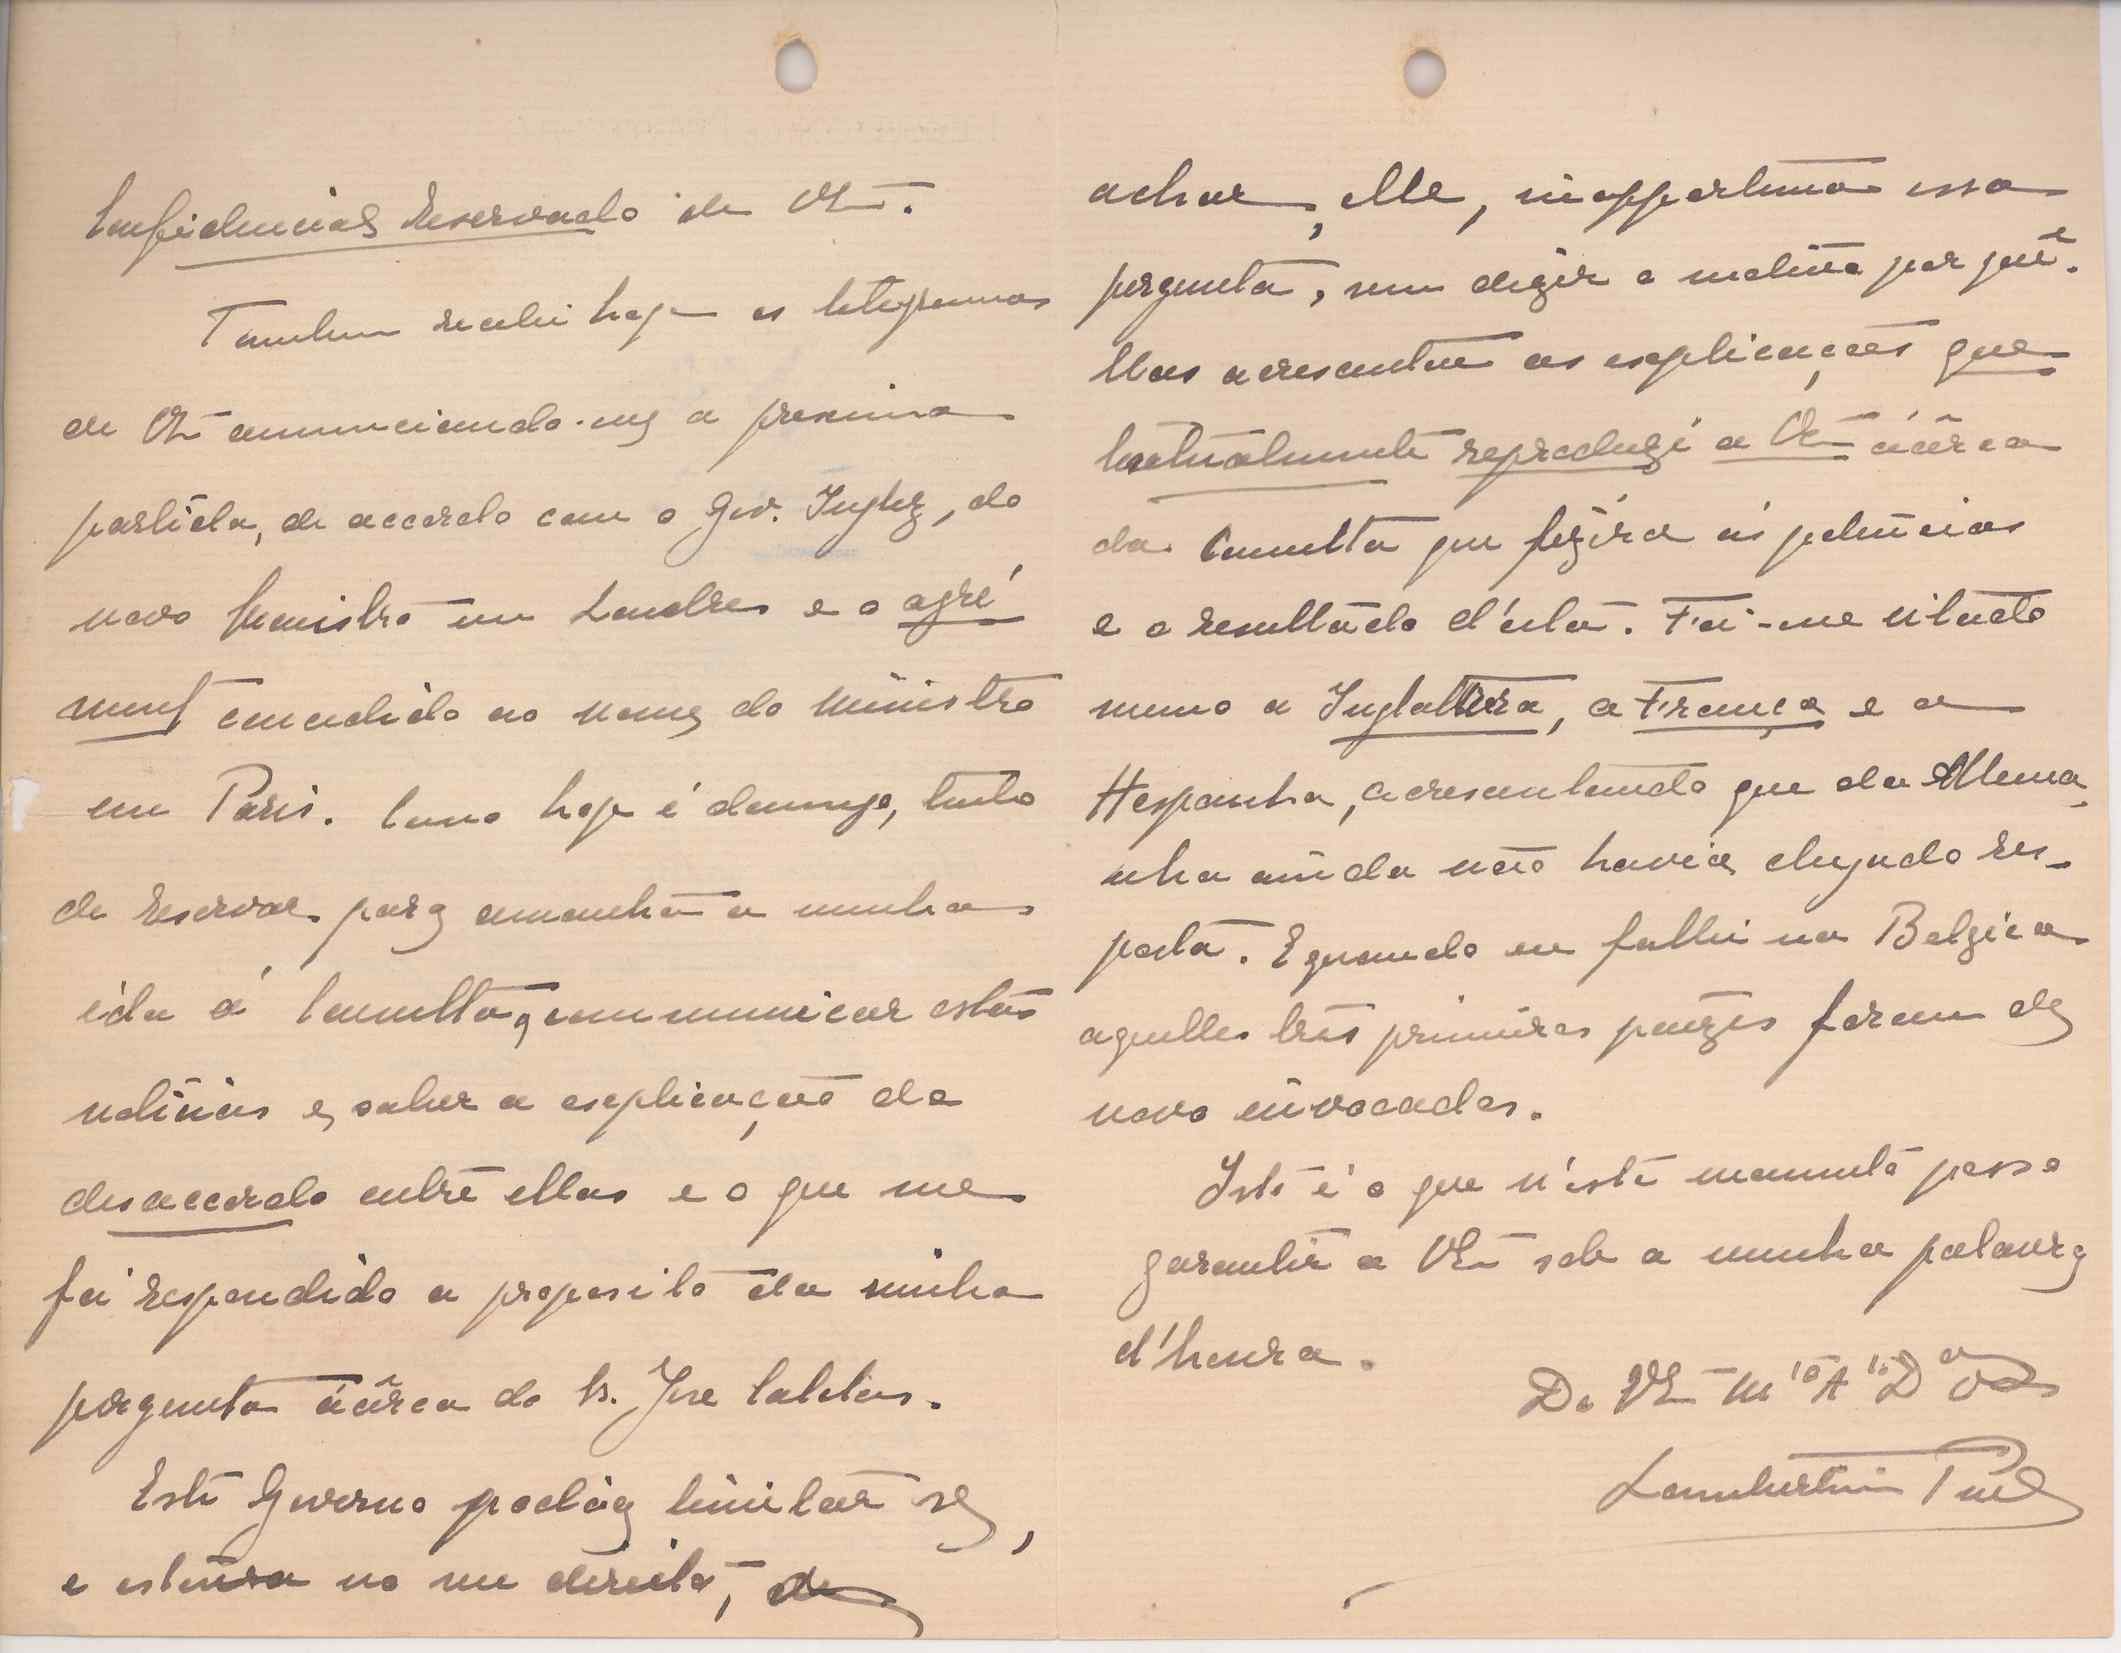 Confidencial Reservado de VEx.
Tambem recebi hoje os telegrammas
de VEx annunciando-me a proxima
partida, de accordo com o Gov. Inglez, do
novo Ministro em Londres e o agré
ment concedido ao nome do Ministro
em Paris. Como hoje é domingo, tenho
de reservar para amanhã a minha
ida á Consulta, communicar estas
noticias e saber a explicação do
desaccordo entre ellas e o que me
foi respondido a proposito da minha
pergunta ácêrca do Sr. José Caldas.
Este Governo podia limitar se,
e estava no seu direito, de
achar, elle, inopportuna essa
pergunta, sem dizer o motivo por quê.
Mas acrescentou as explicações que
textualmente reproduzi a VEx ácêrca
da Consulta que fizéra ás potencias
e o resultado d'esta. Foi-me citado
mesmo a Inglaterra, a França e a
Hespanha, acrescentando que da Allema
nha ainda não havia chegado res-
posta. E quando eu fallei na Belgica
aquelles três primeiros paizes foram de
novo invocados.
Isto é o que n'este momento posso
garantir a VEx sob a minha palavra
d'honra.
De VEx M.to A.to D
Lambertini Pinto